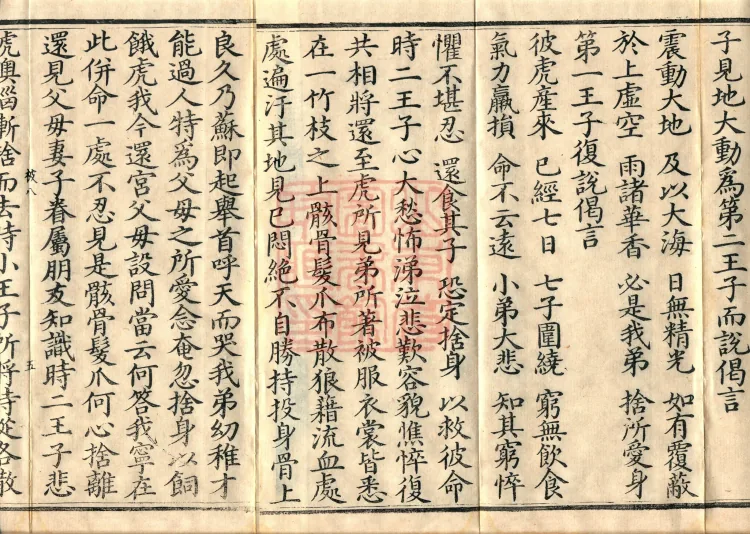 子見地大動為第二王子而說偈言
震動大地 及以大海 日無精光 如有覆蔽
於上虛空 雨諸華香 必是我弟 捨所愛身
第一王子復說偈言
彼虎產來 已經七日 七子圍繞 窮無飲食
氣力羸損 命不云遠 小弟大悲 知其窮悴
懼不堪忍 還食其子 恐定捨身 以救彼命
時二王子心大愁怖涕泣悲歎容貌憔悴復
共相將還至虎所見弟所著被服衣裳皆悉
在一竹枝之上骸骨髮爪布散狼藉流血處
處遍汙其地見已悶絕不自勝持投身骨上
良久乃蘇即起舉首呼天而哭我弟幼稚才
能過人特為父母之所愛念奄忽捨身以飼
餓虎我今還宮父母設問當云何答我寧在
此併命一處不忍見是骸骨髮爪何心捨離
還見父母妻子眷屬朋友知識時二王子悲
五
號懊惱漸捨而去時小王子所將侍從各散